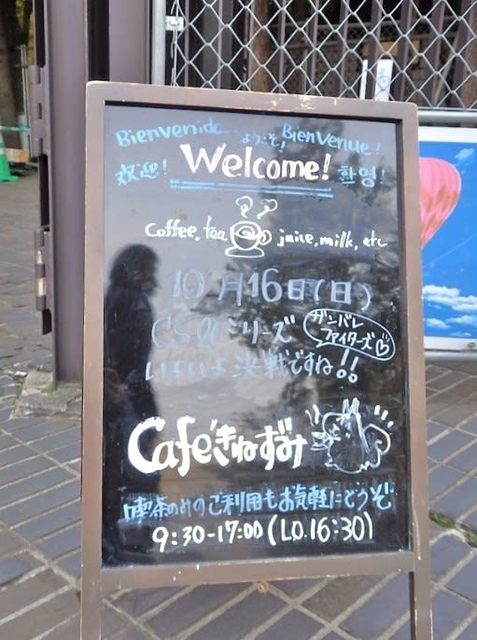 Bienvenido ようこそ! Bienvenue!
欢迎! Welcome! 환영!
Coffee, tea juice, milk, etc
10月16日(日)
CSのシリーズ ガンバレ
ファイターズ♡
いよいよ決戦ですね!!
Cafeきねずみ
喫茶のみのご利用もお気軽にどうぞ
9:30-17:00(L.O.16:30)